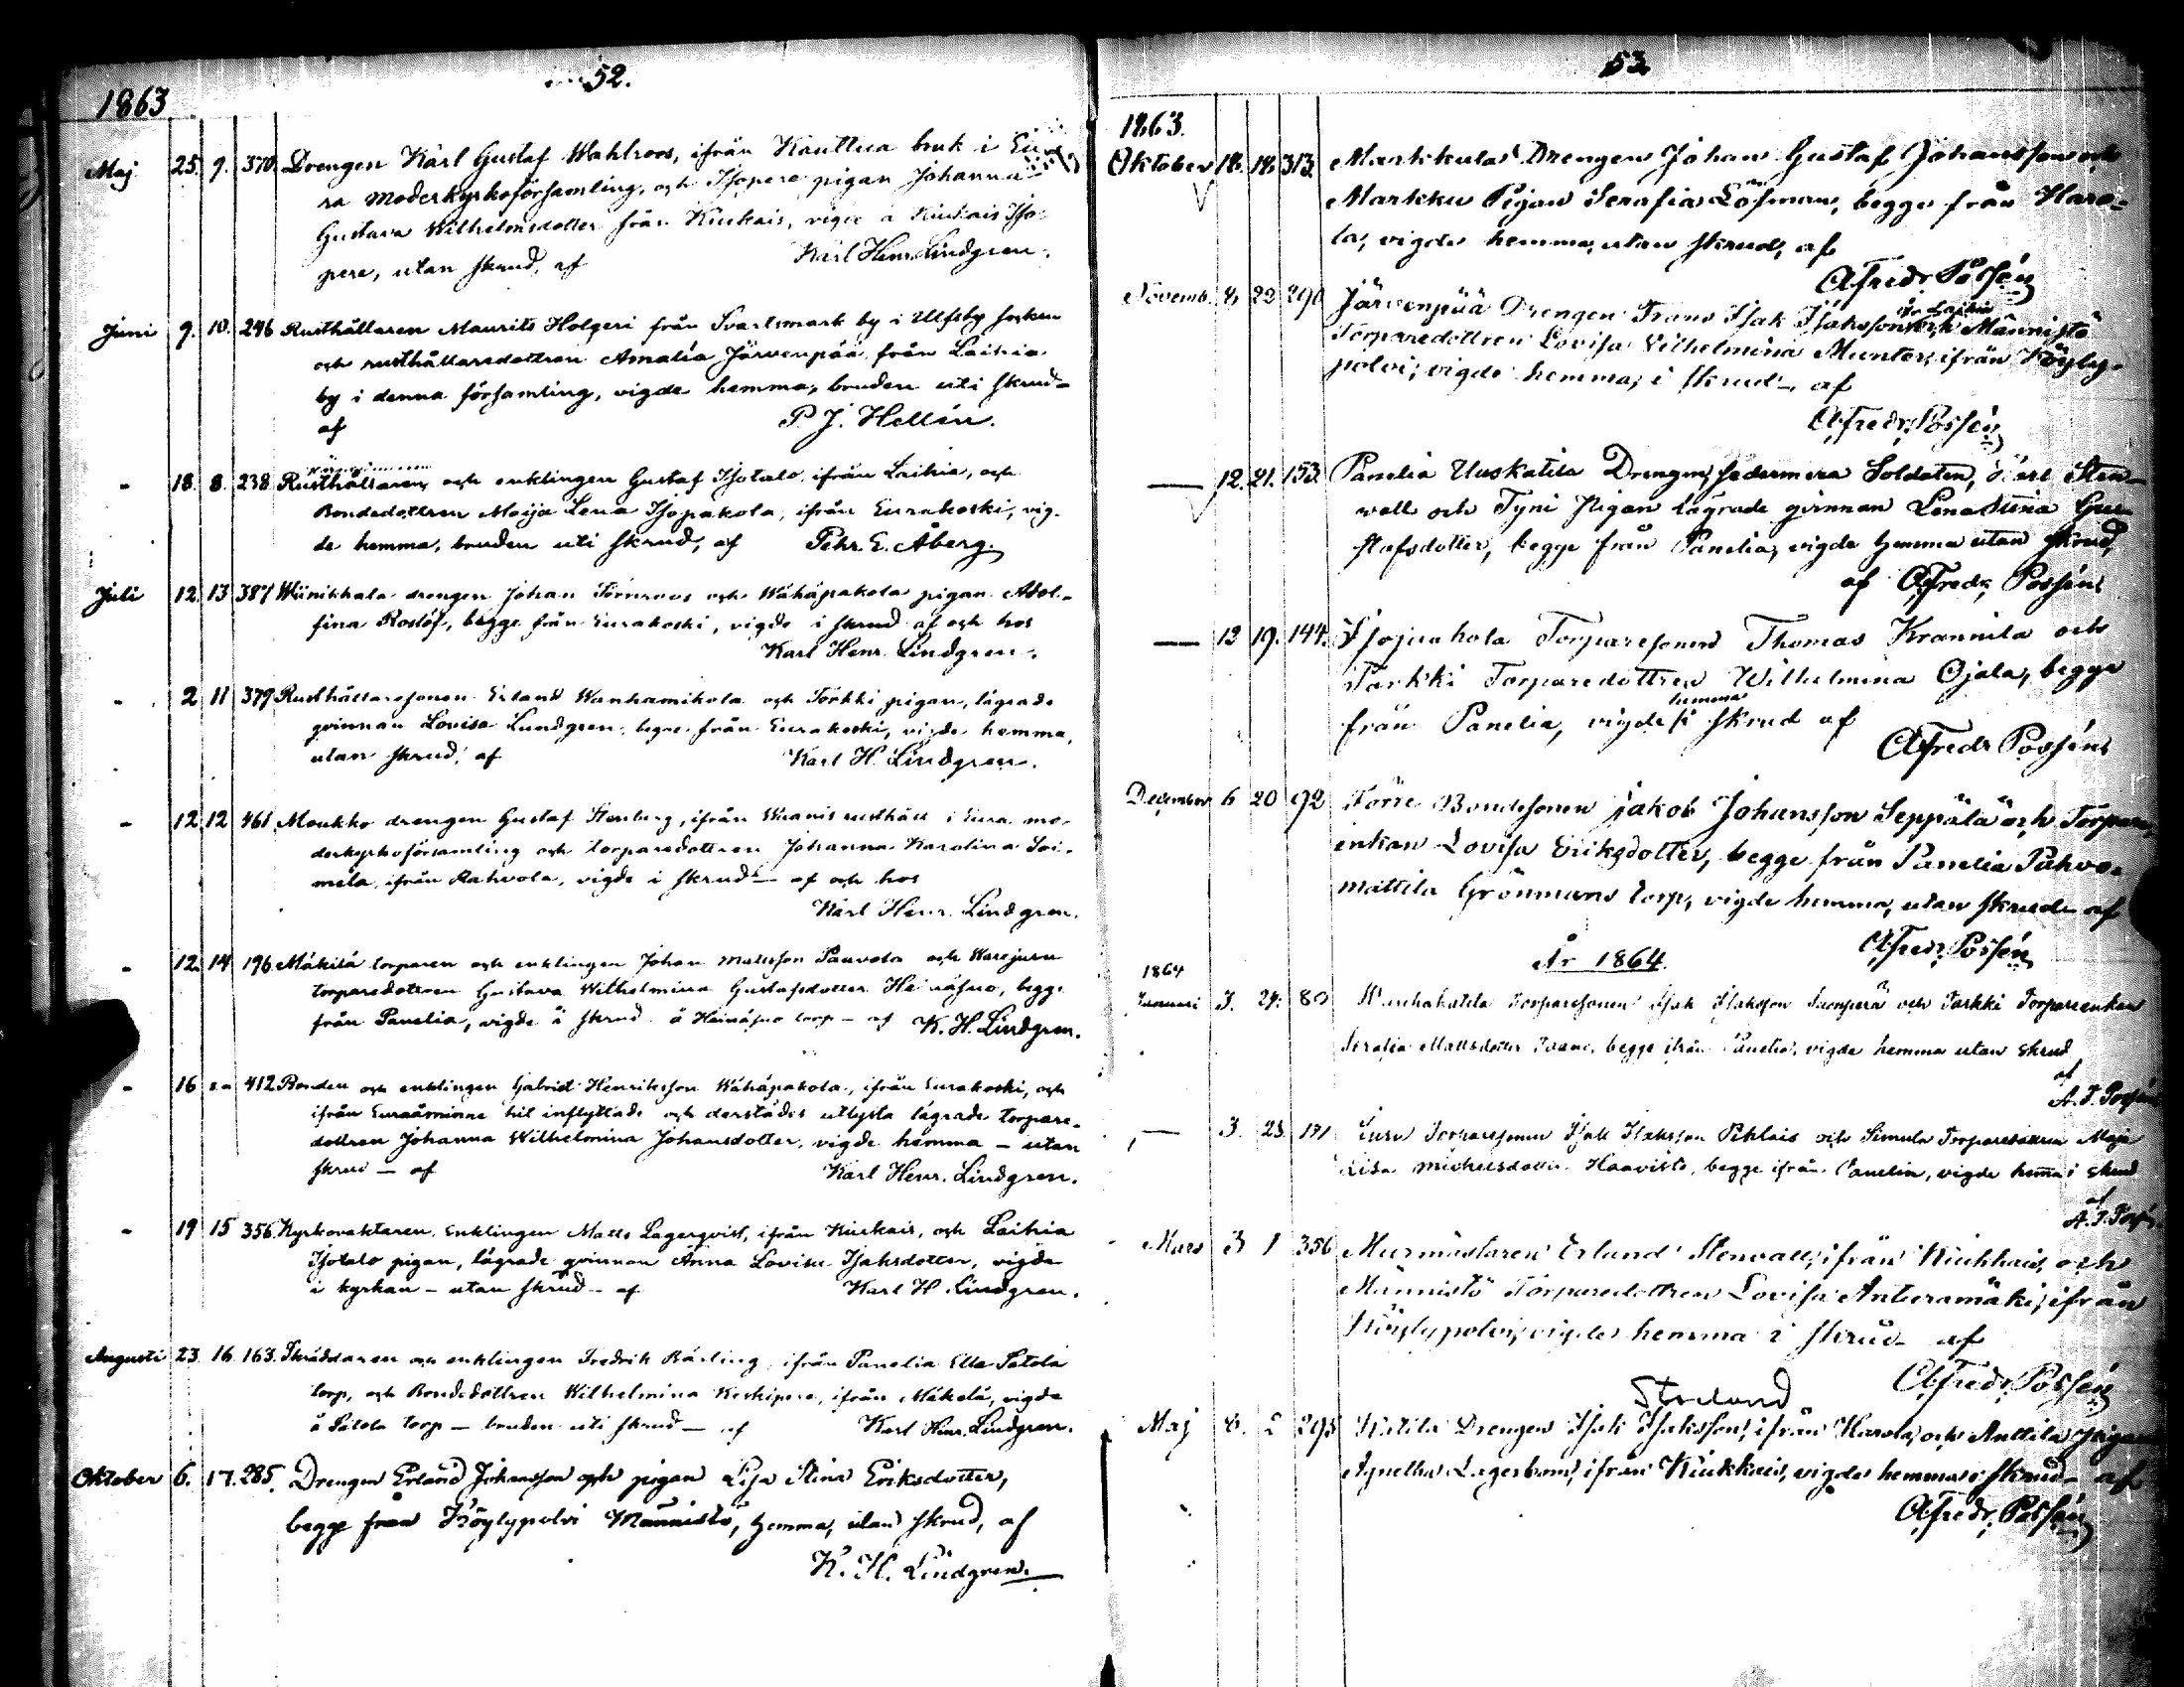 52.
1863
Maj 25. 9. 370. Drengen Karl Gustaf Wahlroos, ifrån Kauttua bruk i Eu
ra moderkyrkoförsamling, och Isopere pigan Johanna
Gustava Wilhelmsdotter från Kiukais, vigde å Kiukais Iso-
pere, utan skrud, af Karl Henr. Lindgren.
Juni 9. 10. 246 Rusthållaren Maurits Holgeri från Svartsmark by i Ulfsby socken
och rusthållaredottren Amalia Järvenpää från Laihia
by i denna församling, vigde hemma, bruden uti skrud-
af P. J. Hellén.
- 18. 8. 238 Rusthållaren och enklingen Gustaf Isotalo, ifrån Laihia, och
Bondedottren Maija Lena Isopakola, ifrån Eurakoski, vig-
de hemma, bruden uti skrud, af Pehr E. Åberg.
Juli 12. 13 387 Wiinikkala drengen Johan Törnroos och Wähäpakola pigan Adol-
fina Roslöf, begge från Eurakoski, vigde i skrud af och hos
Karl Henr. Lindgren.
- 2 11 379 Rusthållaresonen Erland Wanhamikola och Törkki pigan, lägrade
qvinnan Lovisa Lundgren, begge från Eurakoski, vigde hemma,
utan skrud, af Karl H. Lindgren.
- 12 12 461 Moukko drengen Gustaf Stenberg, ifrån rusthåll i Eura mo-
derkyrkoförsamling och torparedottren Johanna Karolina Soi-
mela, ifrån Rahvola, vigde i skrud- af och hos
Karl Henr. Lindgren.
- 12. 14 196 Mäkilä torparen och enklingen Johan Mattsson Paavola och
torparedottren Gustava Wilhelmina Gustafsdotter Heinäsuo, begge
från Panelia, vigde i skrud å Heinäsuo torp - af K. H. Lindgren.
- 16 412 Bonden och enklingen Gabriel Henriksson Wähäpakola, ifrån Eurakoski, och
ifrån Euraåminne hit inflyttade och derstädes utlysta lägrade torpare-
dottren Johanna Wilhelmina Johansdotter, vigde hemma - utan
skrud - af Karl Henr. Lindgren.
- 19 15 356. Kyrkovaktaren Enklingen Matts Lagerqvist, ifrån Kiukais, och Laihia
Isotalo pigan, lägrade qvinnan Anna Lovisa Isaksdotter, vigde
i kyrkan - utan skrud - af Karl H. Lindgren.
Augusti 23. 16 163. Skräddaren och enklingen Fredrik Bärling, ifrån Panelia Satola
torp, och Bondedottren Wilhelmina Keskipere, ifrån Mäkelä, vigde
å Satola torp - bruden uti skrud - af Karl Henr. Lindgren.
Oktober 6. 17. 285. Drengen Erland Johansson och pigan Lisa Stina Eriksdotter,
begge från Köylypolvi Männistö, hemma, utan skrud, af
K. H. Lindgren.
53
1863.
Oktober 18. 18. 313. Markkula Drengen Johan Gustaf Johansson och
Markku Pigan Serafia Löfman, begge från Haro-
la, vigde hemma, utan skrud, af
A Fredr. Possén
Novemb. 8. 22 290 Järvenpää Drengen Frans Isak Isaksson och Männistö
ifr. Laihia
Torparedottren Lovisa Vilhelmina Munter, ifrån Köyly-
polvi, vigde hemma, i skrud- af
A Fredr. Possén
— 12. 21. 153. Panelia Uuskatila Drengen, sedermera Soldaten, Karl Sten-
wall och Tyni Pigan lägrade qvinnan Lena Stina Gu-
stafsdotter, begge från Panelia, vigde hemma utan skrud,
af A Fredr. Possén
— 13 19. 144. Isojunkola Torparesonen Thomas Krannila och
Tarkki Torparedottren Wilhelmina Ojala, begge
hemma
från Panelia, vigde i skrud af
A Fredr Possén
December 6 20 92 Törri Bondesonen Jakob Johansson Seppälä och Torpare
enkan Lovisa Eriksdotter, begge från Panelia Pahvo-
mattila Grönmans torp, vigde hemma, utan skrud af
A Fredr. Possén
År 1864.
1864
Januari 3. 24. 80 Torparesonen Isak Isaksson och Tarkki Torpareenkan
Serafia Mattsdotter begge ifrån Panelia, vigde hemma utan skrud
af
A. F. Possén
— 3. 23. 171 Torparesonen Isak Isaksson Pihlais och Simula Torparedottren Maja
Lisa Michelsdotter Haavisto, begge ifrån Panelia, vigde hemma i skrud
af
A. F. Possén
Mars 3 1 356 Murmästaren Erland Stenvall, ifrån Kiukkais, och
Männistö Torparedottren Lovisa Anteramäki, ifrån
Köylypolvi, vigde hemma i skrud- af
A Fredr. Possén
Strelund
Maj 8. 2 295 Katila Drengen Isak Isaksson, ifrån Harola, och Anttila pigan
Agnetha Lagerbom, ifrån Kiukkais, vigde hemma i skrud- af
A Fredr. Possén